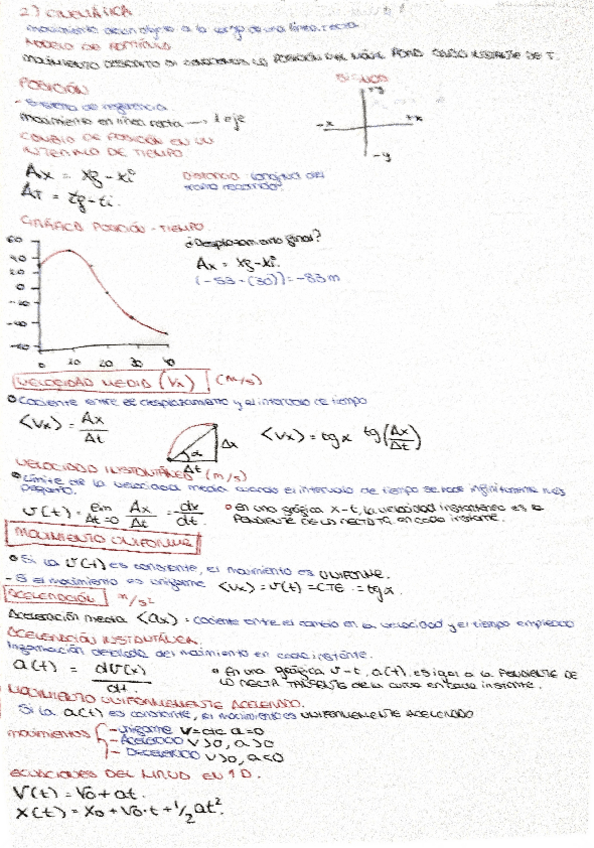 2) CINEMÁTICA
movimiento de un objeto a lo largo de una línea recta
MODELO DE PARTÍCULA
MOVIMIENTO DESCRITO SI CONOCEMOS LA POSICIÓN DEL MÓVIL PARA CADA INSTANTE DE T.
POSICIÓN
SIGNOS
+y
-x +x
-y
- Sistema de referencia
Movimiento en línea recta → 1 eje
CAMBIO DE POSICIÓN EN UN
INTERVALO DE TIEMPO
Δx = xf - xi
Δt = tf - ti.
Distancia: longitud del
tramo recorrido
GRÁFICA POSICIÓN - TIEMPO
¿Desplazamiento final?
Δx = xf - xi
(-53 - (30)) = -83 m
60
40
20
0
0 10 20 30 40
VELOCIDAD MEDIA (Vx) (m/s)
Cociente entre el desplazamiento y el intervalo de tiempo
<Vx> = Δx/Δt
α
Δx
Δt
<Vx> = tg α tg(Δx/Δt)
VELOCIDAD INSTANTÁNEA (m/s)
Límite de la velocidad media cuando el intervalo de tiempo se hace infinitamente más
pequeño.
v(t) = lim Δt=0 Δx/Δt = dv/dt.
En una gráfica x-t, la velocidad instantánea es la
PENDIENTE DE LA RECTA TG EN CADA INSTANTE.
MOVIMIENTO UNIFORME
Si la v(t) es constante, el movimiento es UNIFORME.
- Si el movimiento es uniforme <Vx> = v(t) = CTE = tg α.
ACELERACIÓN m/s²
Aceleración media <ax> = cociente entre el cambio en la velocidad y el tiempo empleado
ACELERACIÓN INSTANTÁNEA
Información detallada del movimiento en cada instante.
a(t) = dv(x)/dt.
En una gráfica v-t, a(t) es igual a la PENDIENTE DE
LA RECTA TANGENTE de la curva en cada instante.
MOVIMIENTO UNIFORMEMENTE ACELERADO.
Si la a(t) es constante, el movimiento es UNIFORMEMENTE ACELERADO
movimientos
- uniforme v=cte a=0
- ACELERADO v>0, a>0
- DECELERADO v>0, a<0
ECUACIONES DEL MRUA EN 1D.
V(t) = V0 + at.
X(t) = X0 + V0·t + 1/2 at².